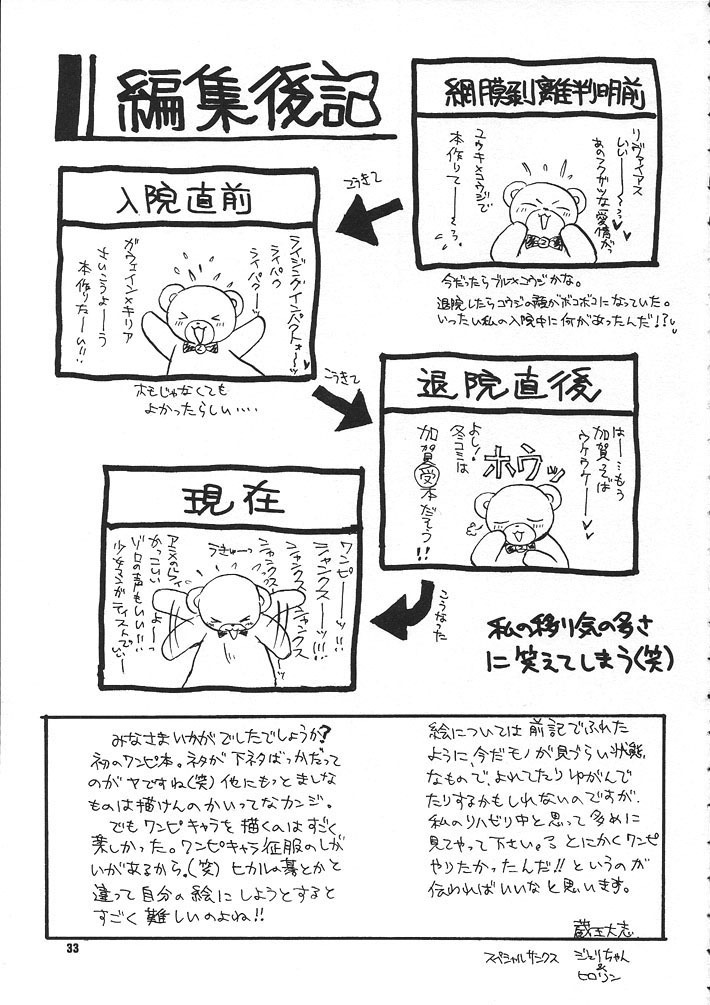 編集後記
網膜剥離判明前
リヴァイアス
いいーーっ
あのフクザツな愛情がっ
ユウキ×コウジで
本作りてーーっ。
今だったらブル×コウジかな。
退院したらコウジの顔がボコボコになっていた。
いったい私の入院中に何があったんだ!?
こうきて
入院直前
ライジングインパクトォーッ
ライパク
ライパクーッ
ガウェイン×キリア
さいこうよーーう
本作りたーい!!
ホモじゃなくても
よかったらしい‥‥
こうきて
退院直後
はー…もう
加賀ってば
ウケウケー
ホウッ
よし!
冬コミは
加賀受本だぞっ!!
こうなった
現在
ワンピーーッ!!
シャンクスーッ!!!
シャンクスシャンクス
シャンクス
うきゅーっ
アニメのルフィ
かっこいいよーっ
ゾロの声もいい!!
少女マンガティストんでいー
私の移り気の多さ
に笑えてしまう(笑)
みなさまいかがでしたでしょうか?
初のワンピ本。ネタが下ネタばっかだって
のがヤですね(笑)他にもっとましな
ものは描けんのかいってなカンジ。
でもワンピキャラを描くのはすごく
楽しかった。ワンピキャラ征服のしが
いがあるから。(笑)ヒカルの碁とかと
違って自分の絵にしようとすると
すごく難しいのよね!!
絵については前記でふれた
ように、今だモノが見づらい状態
なもので、よれてたりゆがんで
たりするかもしれないのですが、
私のリハビリ中と思って多めに
見てやって下さい。る とにかくワンピ
やりたかったんだ!!というのが
伝わればいいなと思います。
蔵王大志
スペシャルサンクス じぇりちゃん
&
ヒロリン
33